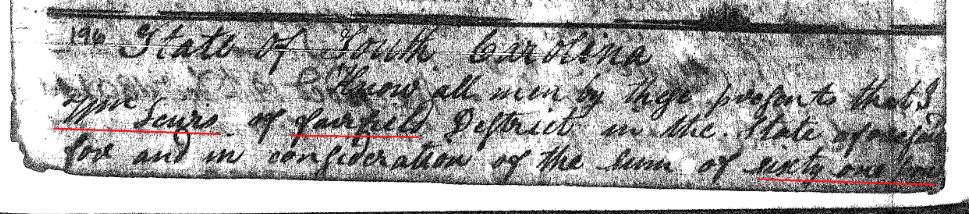 196 State of South Carolina
Know all men by these presents that I
Wm Seurs of Fairfield District in the State aforesaid
for and in consideration of the sum of sixty one